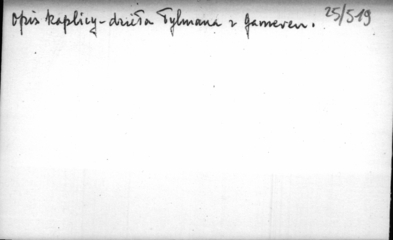 Opis kaplicy - dzieła Tylmana z Gameren. 25/519